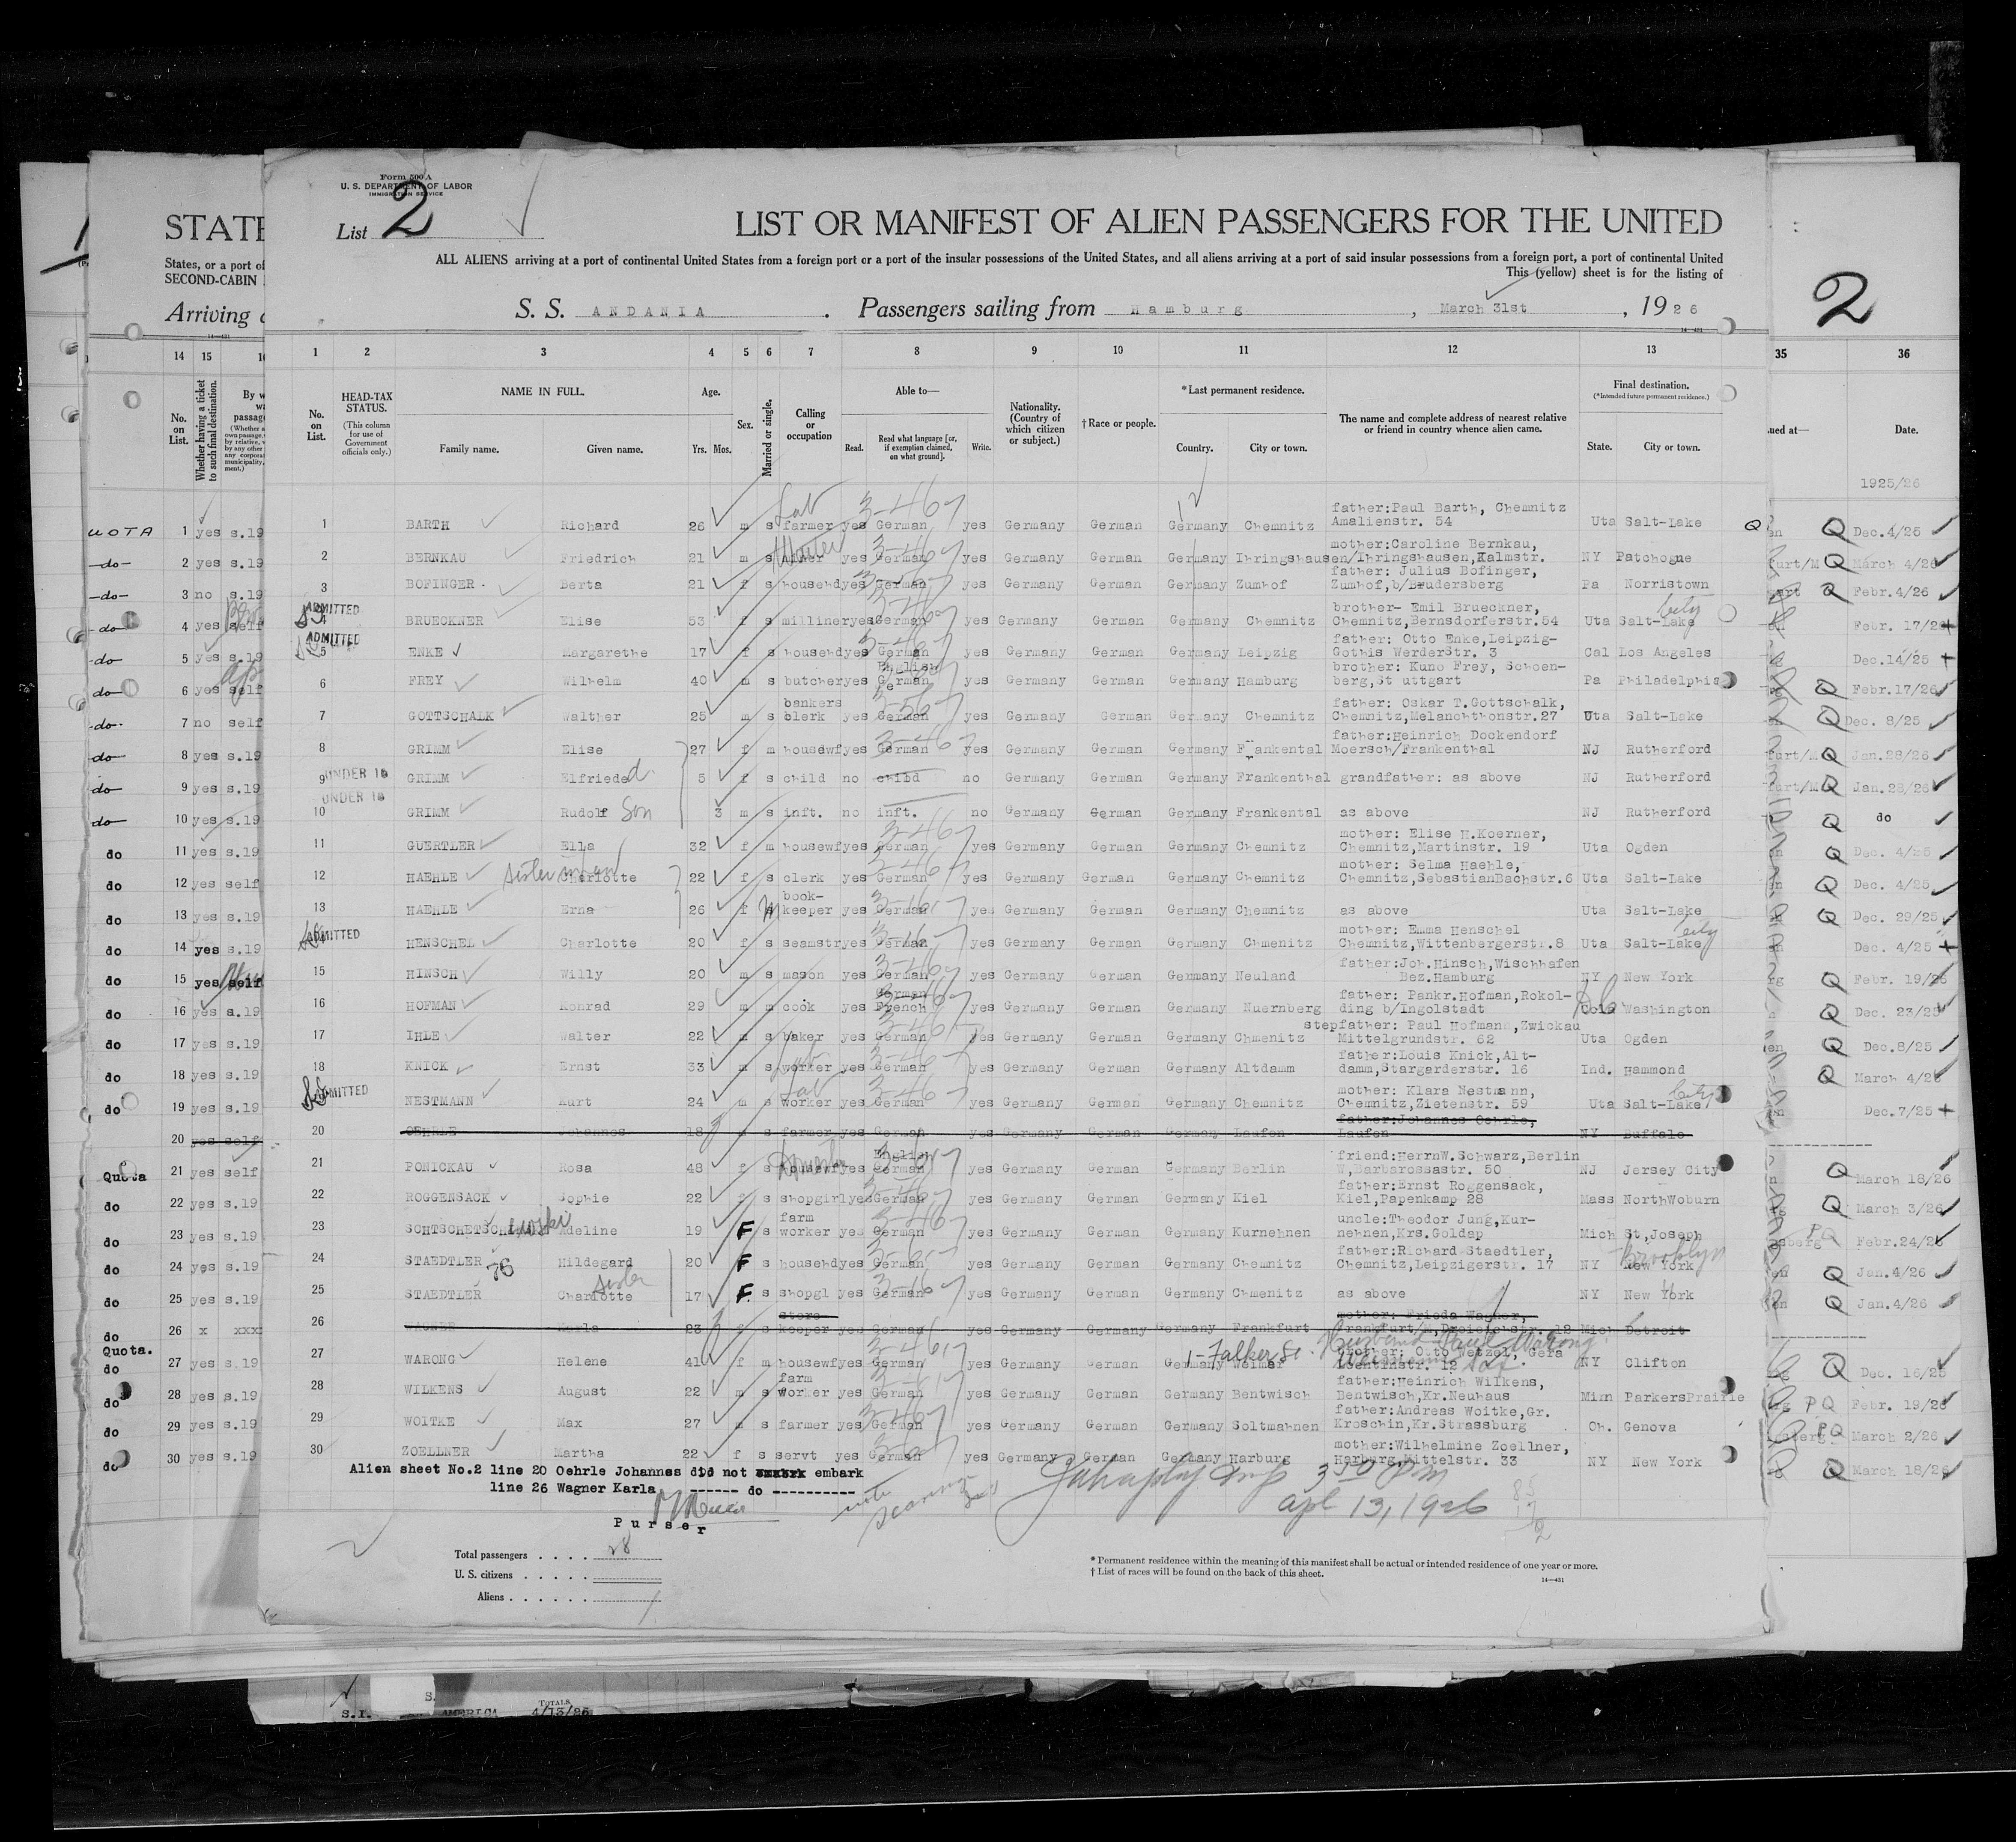 Form 500 A
U. S. DEPARTMENT OF LABOR
IMMIGRATION SERVICE
List 2
LIST OR MANIFEST OF ALIEN PASSENGERS FOR THE UNITED
STATE
ALL ALIENS arriving at a port of continental United States from a foreign port or a port of the insular possessions of the United States, and all aliens arriving at a port of said insular possessions from a foreign port, a port of continental United
States, or a port of
This (yellow) sheet is for the listing of
SECOND-CABIN
S. S. ANDANIA. Passengers sailing from Hamburg, March 31st, 1926
Arriving
2
1 2 3 4 5 6 7 8 9 10 11 12 13
14 15 35 36
No. on List.
HEAD-TAX STATUS.
(This column for use of Government officials only.)
NAME IN FULL.
Family name. Given name.
Age.
Yrs. Mos.
Sex.
Married or single.
Calling or occupation
Able to—
Read. Read what language [or, if exemption claimed, on what ground]. Write.
Nationality. (Country of which citizen or subject.)
† Race or people.
* Last permanent residence.
Country. City or town.
The name and complete address of nearest relative or friend in country whence alien came.
Final destination.
(*Intended future permanent residence.)
State. City or town.
No. on List.
Whether having a ticket to such final destination.
Date.
1925/26
1 BARTH Richard 26 m s farmer yes German yes Germany German Germany Chemnitz father:Paul Barth, Chemnitz Amalienstr. 54 Uta Salt-Lake Q Dec.4/25
2 BERNKAU Friedrich 21 m s yes German yes Germany German Germany Ihringshausen/Ihringshausen,Kalmstr. mother:Caroline Bernkau, NY Patchogne Q March 4/26
3 BOFINGER Berta 21 f s househd yes German yes Germany German Germany Zumhof father: Julius Bofinger, Zumhof,b/Brudersberg Pa Norristown Q Febr.4/26
ADMITTED 4 BRUECKNER Elise 53 f s milliner yes German yes Germany German Germany Chemnitz brother- Emil Brueckner, Chemnitz,Bernsdorferstr.54 Uta Salt-Lake city Febr. 17/26
ADMITTED 5 ENKE Margarethe 17 f s househd yes German yes Germany German Germany Leipzig father: Otto Enke,Leipzig-Gothis WerderStr. 3 Cal Los Angeles Dec.14/25
6 FREY Wilhelm 40 m s butcher yes English German yes Germany German Germany Hamburg brother: Kuno Frey, Schoenberg,St uttgart Pa Philadelphia Q Febr.17/26
7 GOTTSCHALK Walther 25 m s bankers clerk yes German yes Germany German Germany Chemnitz father: Oskar T.Gottschalk, Chemnitz,Melanchthonstr.27 Uta Salt-Lake Q Dec. 8/25
8 GRIMM Elise 27 f m housewf yes German yes Germany German Germany Frankental father:Heinrich Dockendorf Moersch/Frankenthal NJ Rutherford Q Jan.28/26
UNDER 16 9 GRIMM Elfriede d. 5 f s child no child no Germany German Germany Frankenthal grandfather: as above NJ Rutherford Q Jan.28/26
UNDER 16 10 GRIMM Rudolf Son 3 m s inft. no inft. no Germany German Germany Frankental as above NJ Rutherford Q do
11 GUERTLER Ella 32 f m housewf yes German yes Germany German Germany Chemnitz mother: Elise H.Koerner, Chemnitz,Martinstr. 19 Uta Ogden Q Dec. 4/25
12 HAEHLE sister in law Charlotte 22 f s clerk yes German yes Germany German Germany Chemnitz mother: Selma Haehle, Chemnitz,SebastianBachstr.6 Uta Salt-Lake Q Dec. 4/25
13 HAEHLE Erna 26 f m book-keeper yes German yes Germany German Germany Chemnitz as above Uta Salt-Lake Q Dec. 29/25
ADMITTED HENSCHEL Charlotte 20 f s seamstr yes German yes Germany German Germany Chmenitz mother: Emma Henschel Chemnitz,Wittenbergerstr.8 Uta Salt-Lake city Dec. 4/25
15 HINSCH Willy 20 m s mason yes German yes Germany German Germany Neuland father:Joh.Hinsch,Wischhafen Bez.Hamburg NY New York Q Febr. 19/26
16 HOFMAN Konrad 29 m m cook yes German French yes Germany German Germany Nuernberg father: Pankr.Hofman,Rokolding b/Ingolstadt Washington Q Dec. 23/25
17 IHLE Walter 22 m s baker yes German yes Germany German Germany Chmenitz stepfather: Paul Hofmann,Zwickau Mittelgrundstr. 62 Uta Ogden Q Dec.8/25
18 KNICK Ernst 33 m s worker Lab yes German yes Germany German Germany Altdamm father:Louis Knick,Altdamm,Stargarderstr. 16 Ind. Hammond Q March 4/26
ADMITTED NESTMANN Kurt 24 m s worker Lab yes German yes Germany German Germany Chemnitz mother: Klara Nestmann, Chemnitz,Zietenstr. 59 Uta Salt-Lake city Dec.7/25
20 OEHRLE Johannes 18 m s farmer yes German yes Germany German Germany Laufen father:Johannes Oehrle, Laufen NY Buffalo
21 PONICKAU Rosa 48 f s housewf Domestic yes English German yes Germany German Germany Berlin friend:HerrnW.Schwarz,Berlin W,Barbarossastr. 50 NJ Jersey City Q March 18/26
22 ROGGENSACK Sophie 22 f s shopgirl yes German yes Germany German Germany Kiel father:Ernst Roggensack, Kiel,Papenkamp 28 Mass NorthWoburn Q March 3/26
23 Adeline 19 F s farm worker yes German yes Germany German Germany Kurnehnen uncle:Theodor Jung,Kurnehnen,Krs.Goldap Mich St,Joseph PQ Febr.24/26
24 STAEDTLER Hildegard 20 F s househd yes German yes Germany German Germany Chemnitz father:Richard Staedtler, Chemnitz,Leipzigerstr. 17 NY New York Brooklyn Q Jan.4/26
25 STAEDTLER sister Charlotte 17 F s shopgl yes German yes Germany German Germany Chmenitz as above NY New York Q Jan.4/26
26 WAGNER Karla 23 f s store keeper yes German yes Germany Germany Germany Frankfurt mother: Frieda Wagner, Frankfurt/M,Dreieichstr. 12 Mich Detroit
27 WARONG Helene 41 f m housewf yes German yes Germany German Germany Weimar brother: Otto Wetzel, Gera 12 Husband Paul Warong NY Clifton Q Dec. 16/25
28 WILKENS August 22 m s farm worker yes German yes Germany German Germany Bentwisch father:Heinrich Wilkens, Bentwisch,Kr.Neuhaus Minn ParkersPrairie PQ Febr. 19/26
29 WOITKE Max 27 m s farmer yes German yes Germany German Germany Soltmahnen father:Andreas Woitke,Gr. Kroschin,Kr.Strassburg Oh. Genova PQ March 2/26
30 ZOELLNER Martha 22 f s servt yes German yes Germany German Germany Harburg mother:Wilhelmine Zoellner, Harburg,Mittelstr. 33 NY New York Q March 18/26
Alien sheet No.2 line 20 Oehrle Johannes did not embark
line 26 Wagner Karla ------ do ----------
Purser
3 50 PM
Apl 13, 1926
Total passengers . . . . 28
U. S. citizens . . . . .
Aliens . . . . . .
* Permanent residence within the meaning of this manifest shall be actual or intended residence of one year or more.
† List of races will be found on the back of this sheet.
14—431
TOTALS
4/13/26